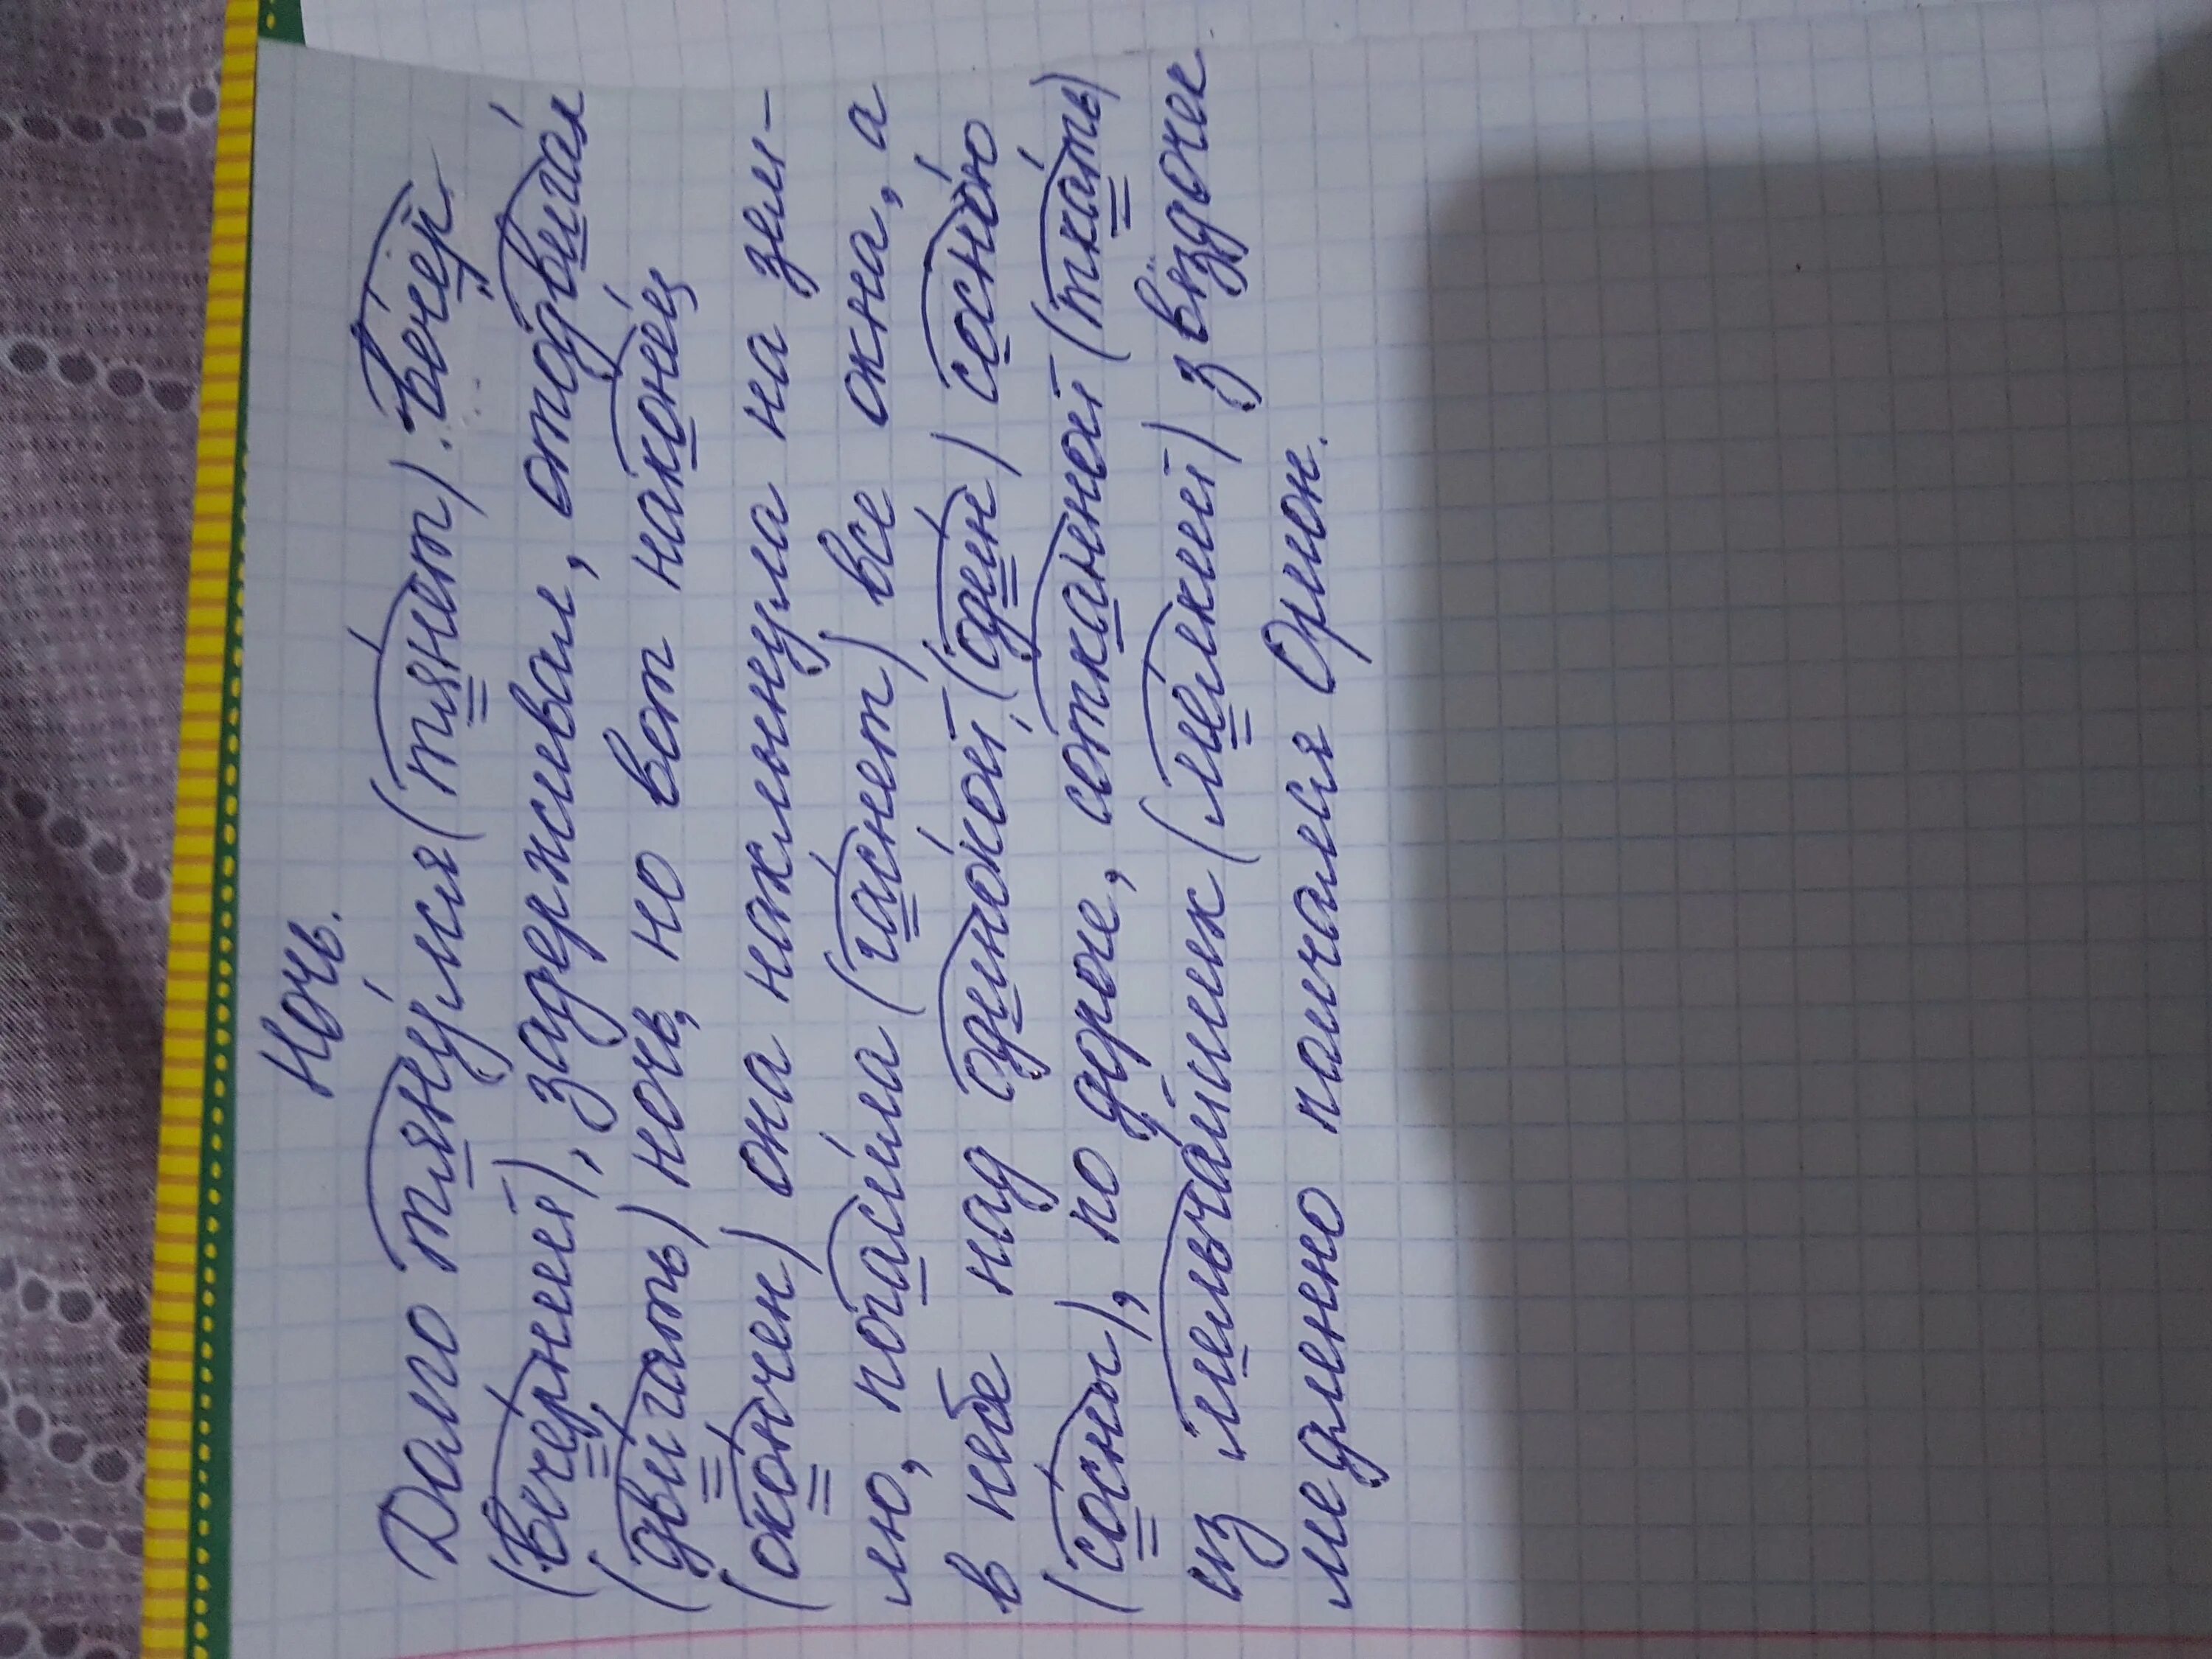 Ночь.
Долго тяну́лся (тя́нет). Ве́чер
(вече́рний), задерживал, отодвига́л
(дви́гать) ночь, но вот наконе́ц
(око́нчен) она нахлынула на зем-
лю, погаси́ла (га́снет) все окна, а
в небе над одино́кой (оди́н) сосно́ю
(со́сны), по дороге, сотканной (тка́ть)
из мельча́йших (ме́лкий) звёздочек
медленно помчался Орион.